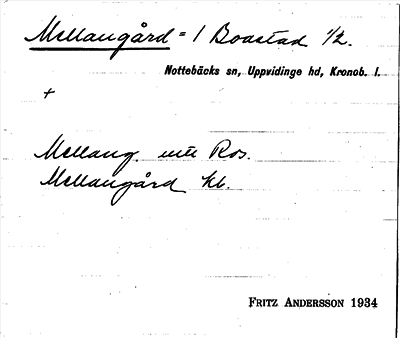 Mellangård = 1 Boastad 1/2.
Nottebäcks sn, Uppvidinge hd, Kronob. l.
+
Mellang. utt Ros.
Mellangård kb.
FRITZ ANDERSSON 1934